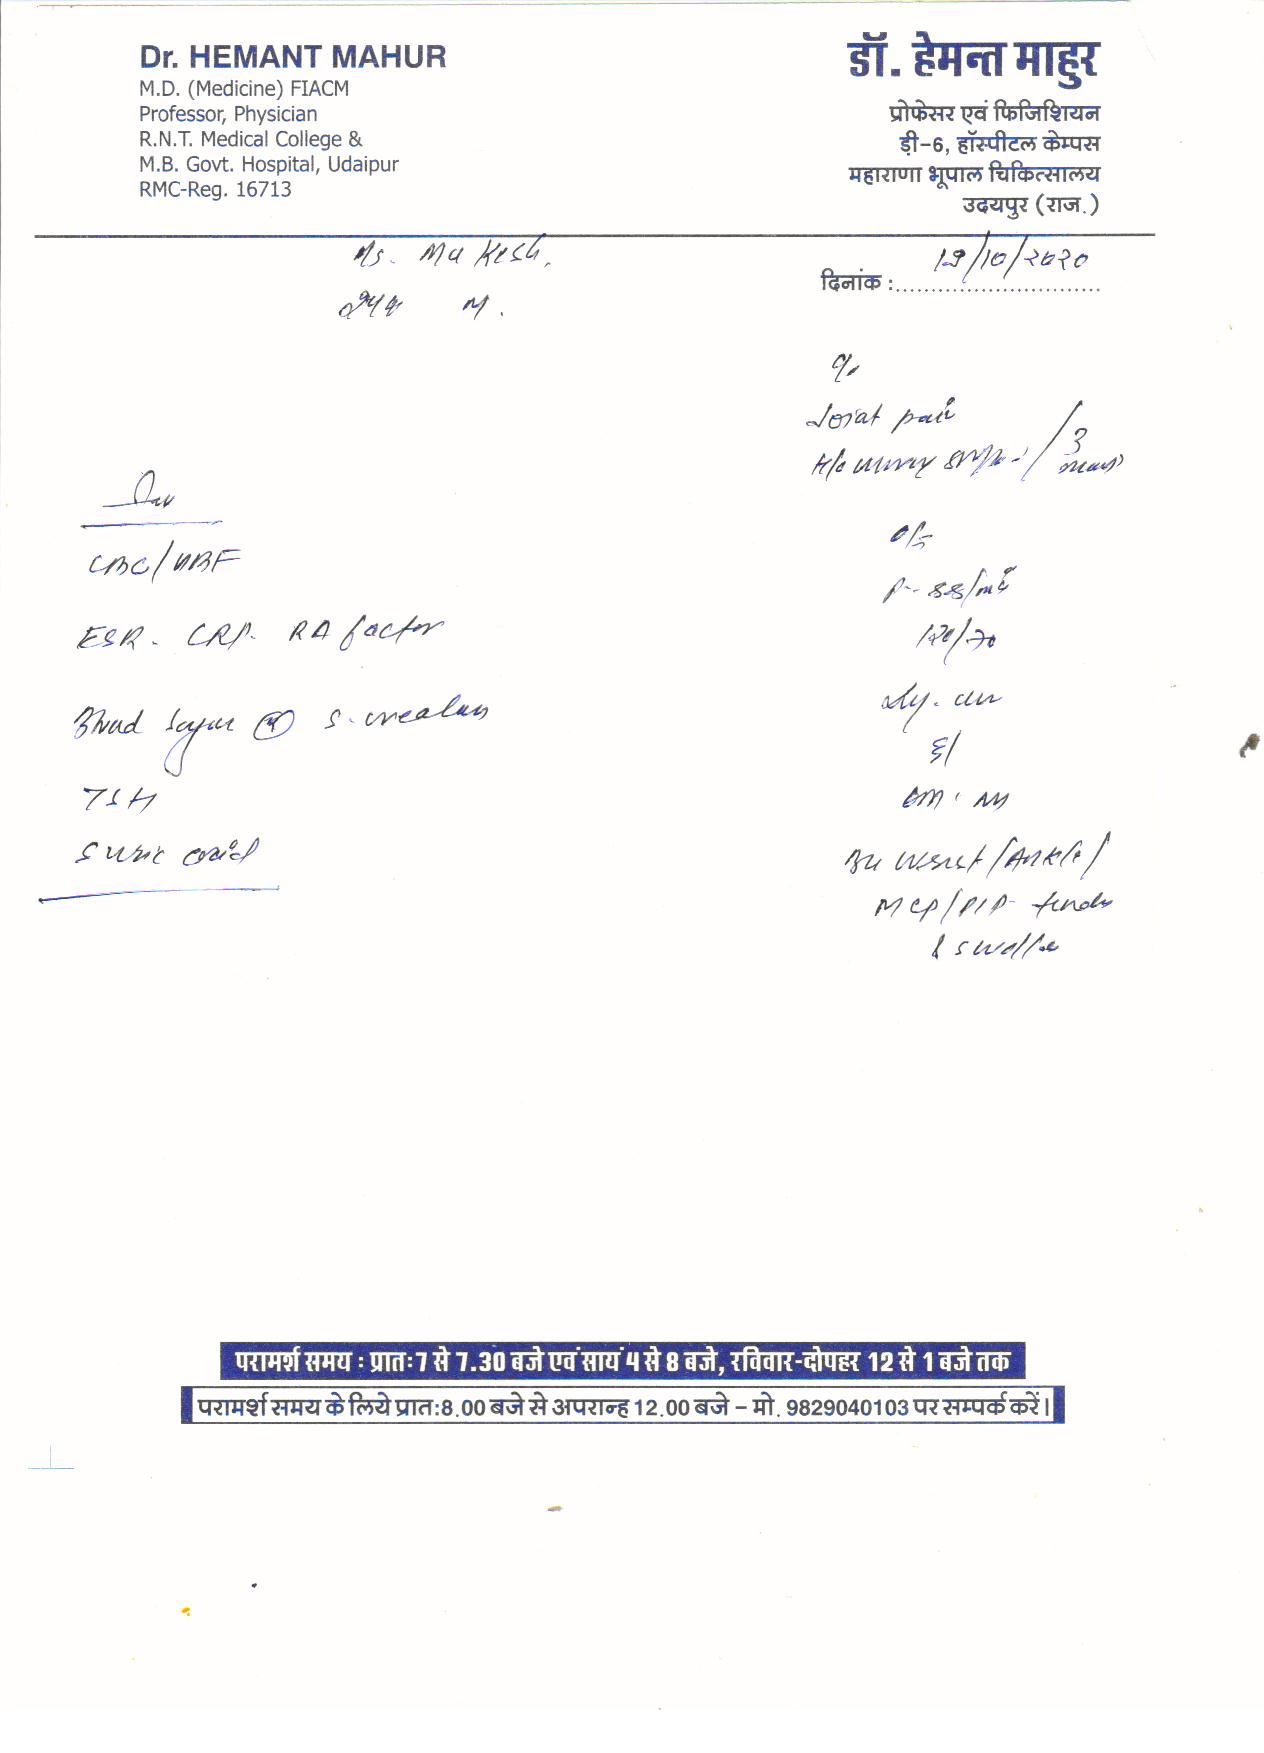 Dr. HEMANT MAHUR
M.D. (Medicine) FIACM
Professor, Physician
R.N.T. Medical College &
M.B. Govt. Hospital, Udaipur
RMC-Reg. 16713
डॉ. हेमन्त माहुर
प्रोफेसर एवं फिजिशियन
ड़ी-6, हॉस्पीटल केम्पस
महाराणा भूपाल चिकित्सालय
उदयपुर (राज.)
Mukesh.
दिनांक :
M.
C/o
Joint pain
3
O/E
P- 88/min
120/70
S/
Wrist/Ankle/
MCP/PIP- tender
& swollen
Inv
CBC/
ESR. CRP. RA factor
Blood Sugar (R) S. creatinin
TSH
S uric acid
परामर्श समय : प्रातः 7 से 7.30 बजे एवं सायं 4 से 8 बजे, रविवार-दोपहर 12 से 1 बजे तक
परामर्श समय के लिये प्रात:8.00 बजे से अपरान्ह 12.00 बजे - मो. 9829040103 पर सम्पर्क करें।